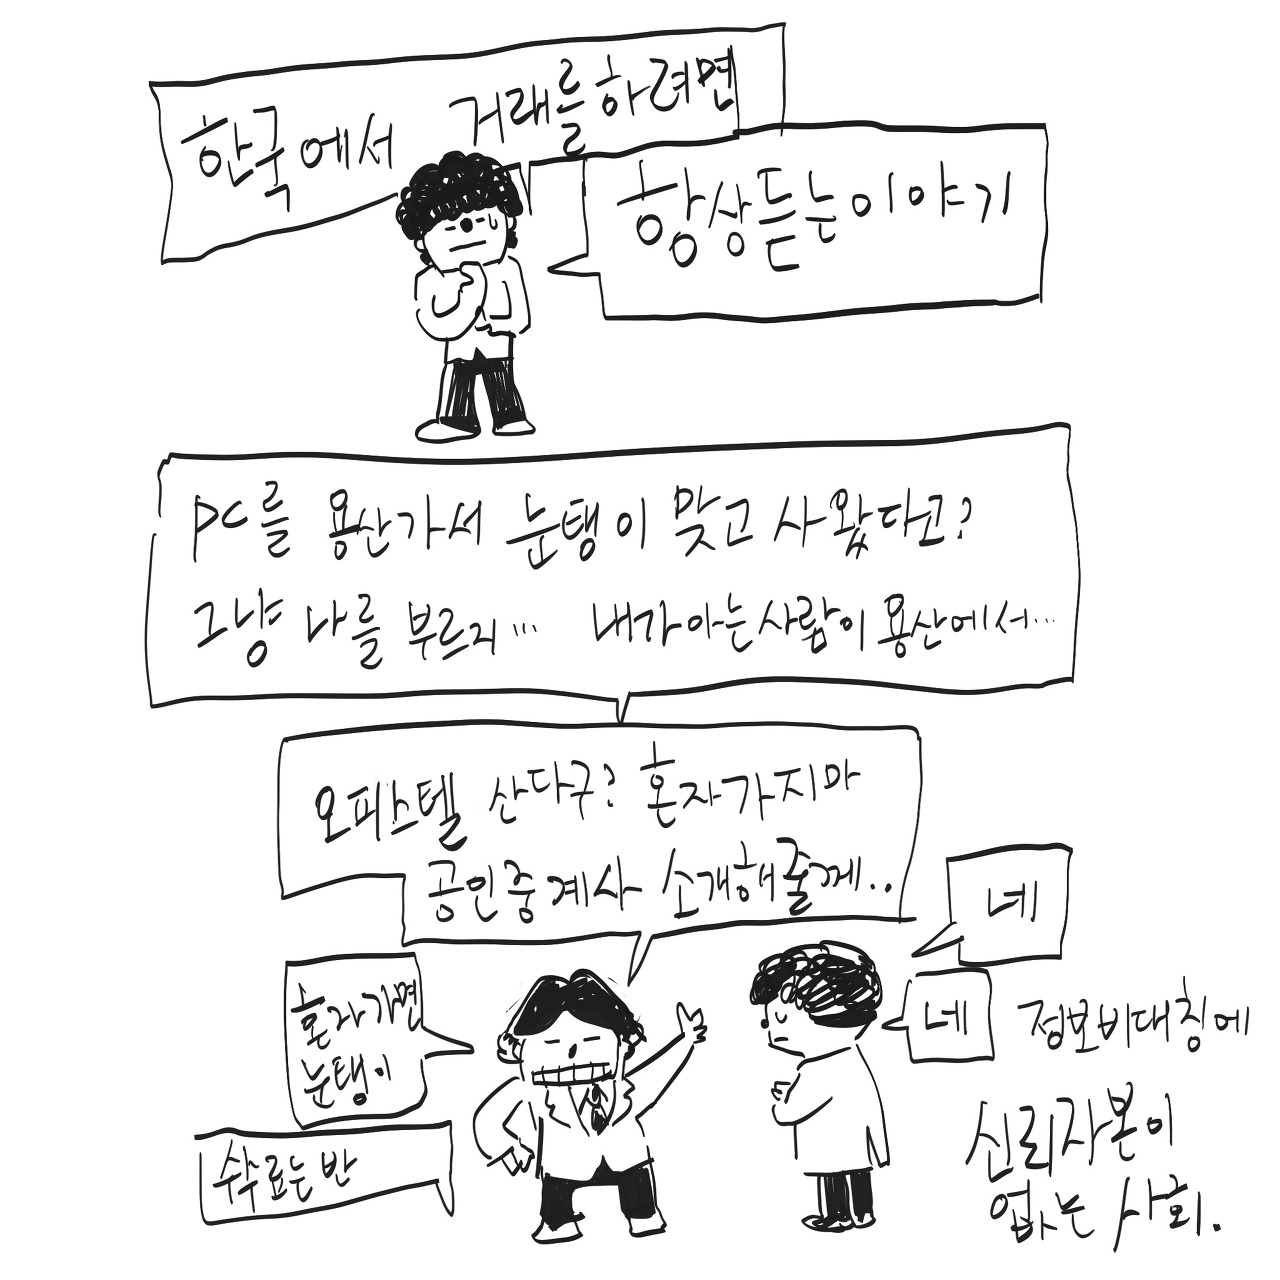 한국에서 거래를하려면
항상듣는이야기
PC를 용산가서 눈탱이 맞고 사왔다고?
그냥 나를 부르지... 내가아는사람이 용산에서...
오피스텔 산다구? 혼자가지마
공인중계사 소개해줄께..
네
네
혼자가면
눈탱이
수수료는반
정보비대칭에
신뢰자본이
없는 사회.